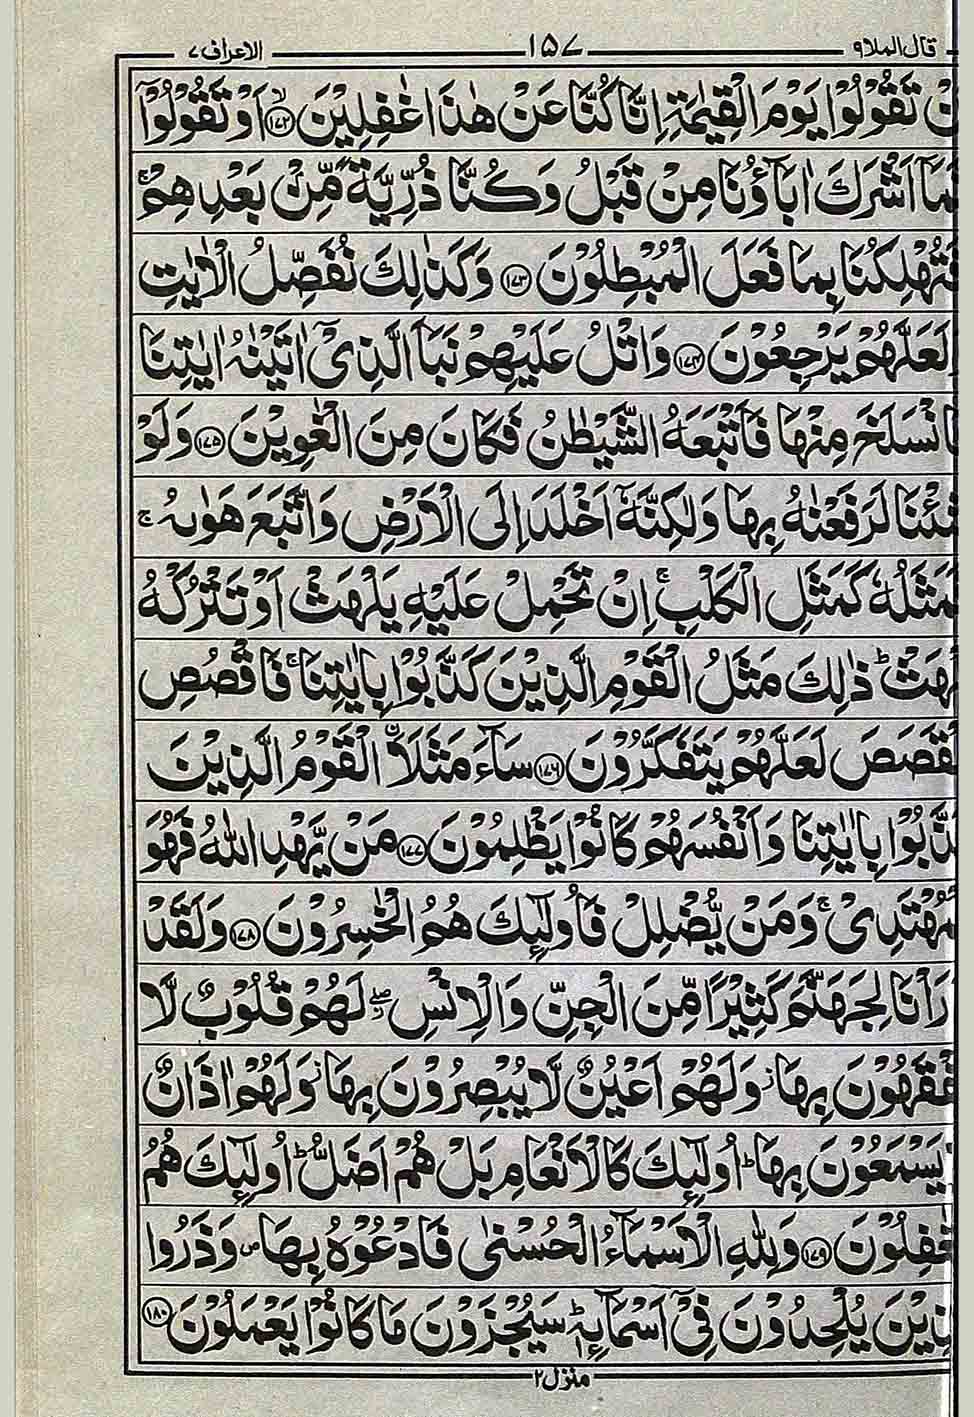 قال الملا ٩ ١٥٧ الاعراف ٧
تَقُوْلُوْا يَوْمَ الْقِيٰمَةِ اِنَّا كُنَّا عَنْ هٰذَا غٰفِلِيْنَ ﴿١٧٢﴾ۙ اَوْ تَقُوْلُوْۤا
اَشْرَكَ اٰبَآؤُنَا مِنْ قَبْلُ وَكُنَّا ذُرِّيَّةً مِّنْۢ بَعْدِهِمْ ۚ
بِمَا فَعَلَ الْمُبْطِلُوْنَ ﴿١٧٣﴾ وَكَذٰلِكَ نُفَصِّلُ الْاٰيٰتِ
لَعَلَّهُمْ يَرْجِعُوْنَ ﴿١٧٤﴾ وَاتْلُ عَلَيْهِمْ نَبَاَ الَّذِيْۤ اٰتَيْنٰهُ اٰيٰتِنَا
مِنْهَا فَاَتْبَعَهُ الشَّيْطٰنُ فَكَانَ مِنَ الْغٰوِيْنَ ﴿١٧٥﴾ وَلَوْ
لَرَفَعْنٰهُ بِهَا وَلٰكِنَّهٗۤ اَخْلَدَ اِلَى الْاَرْضِ وَاتَّبَعَ هَوٰىهُ ۚ
كَمَثَلِ الْكَلْبِ ۚ اِنْ تَحْمِلْ عَلَيْهِ يَلْهَثْ اَوْ تَتْرُكْهُ
ذٰلِكَ مَثَلُ الْقَوْمِ الَّذِيْنَ كَذَّبُوْا بِاٰيٰتِنَا ۚ فَاقْصُصِ
لَعَلَّهُمْ يَتَفَكَّرُوْنَ ﴿١٧٦﴾ سَآءَ مَثَلَاۨ الْقَوْمُ الَّذِيْنَ
بِاٰيٰتِنَا وَاَنْفُسَهُمْ كَانُوْا يَظْلِمُوْنَ ﴿١٧٧﴾ مَنْ يَّهْدِ اللّٰهُ فَهُوَ
وَمَنْ يُّضْلِلْ فَاُولٰٓئِكَ هُمُ الْخٰسِرُوْنَ ﴿١٧٨﴾ وَلَقَدْ
لِجَهَنَّمَ كَثِيْرًا مِّنَ الْجِنِّ وَالْاِنْسِ ۖ لَهُمْ قُلُوْبٌ لَّا
بِهَا ؗ وَلَهُمْ اَعْيُنٌ لَّا يُبْصِرُوْنَ بِهَا ؗ وَلَهُمْ اٰذَانٌ
يَسْمَعُوْنَ بِهَا ؕ اُولٰٓئِكَ كَالْاَنْعَامِ بَلْ هُمْ اَضَلُّ ؕ اُولٰٓئِكَ هُمُ
وَلِلّٰهِ الْاَسْمَآءُ الْحُسْنٰى فَادْعُوْهُ بِهَا ۪ وَذَرُوا ﴿١٧٩﴾
يُلْحِدُوْنَ فِيْۤ اَسْمَآئِهٖ ؕ سَيُجْزَوْنَ مَا كَانُوْا يَعْمَلُوْنَ ﴿١٨٠﴾
منزل ٢